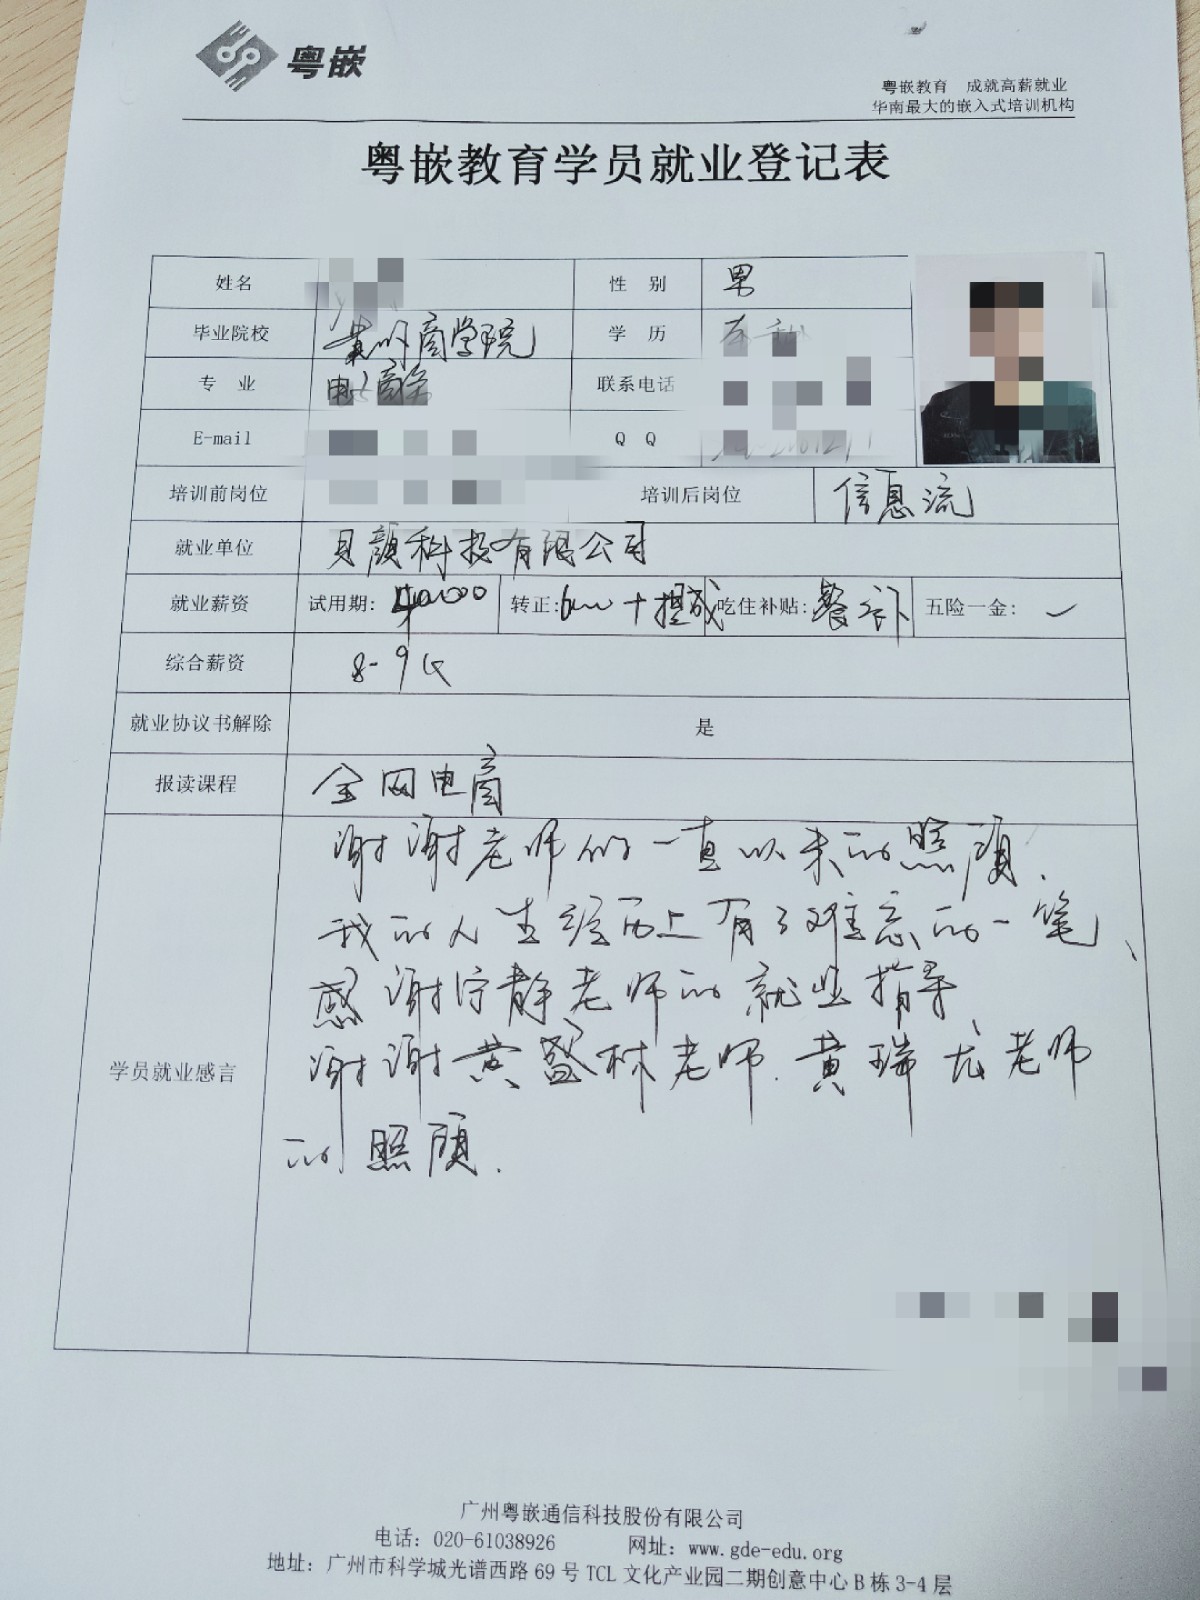 粤嵌
粤嵌教育 成就高薪就业
华南最大的嵌入式培训机构
粤嵌教育学员就业登记表
姓名 性 别 男
毕业院校 商学院 学 历
专 业 电子商务 联系电话
E-mail Q Q
培训前岗位 培训后岗位 信息流
就业单位 贝颜科技有限公司
就业薪资 试用期: 转正: +提成 吃住补贴: 餐补 五险一金:
综合薪资 8-9K
就业协议书解除 是
报读课程 全网电商
谢谢老师们一直以来的照顾.
我的人生经历上有了难忘的一笔、
感谢宁静老师的就业指导
学员就业感言
谢谢黄盛林老师.黄瑞龙老师
的照顾.
广州粤嵌通信科技股份有限公司
电话: 020-61038926 网址: www.gde-edu.org
地址: 广州市科学城光谱西路 69 号 TCL 文化产业园二期创意中心 B 栋 3-4 层